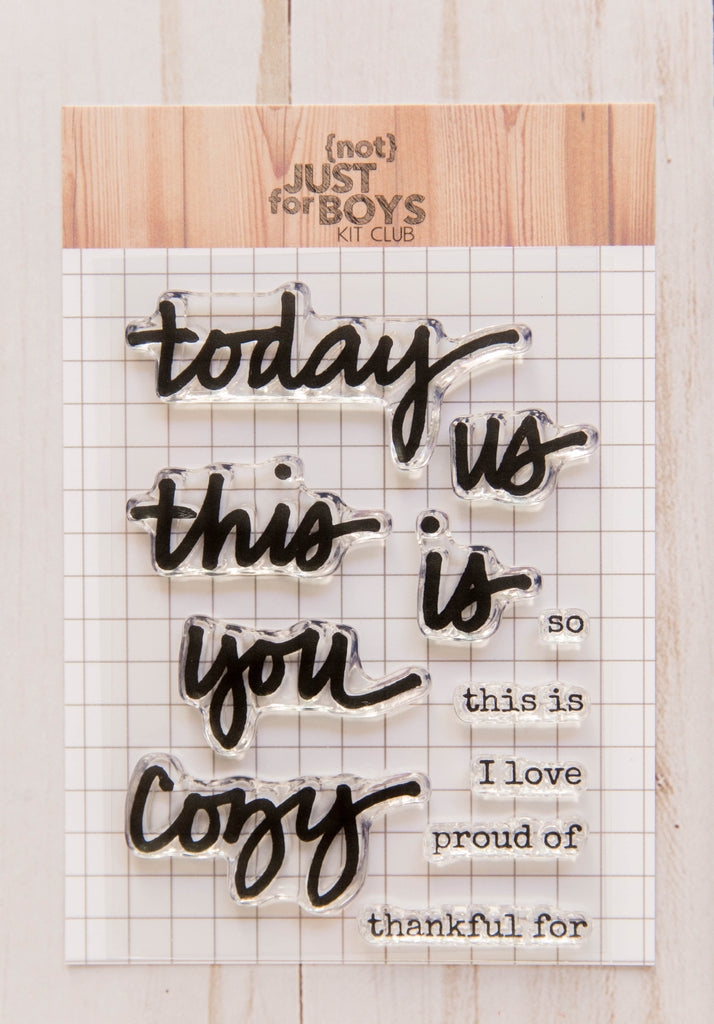 {not}
JUST
for BOYS
KIT CLUB
today
us
this
is
so
you
this is
I love
cozy
proud of
thankful for